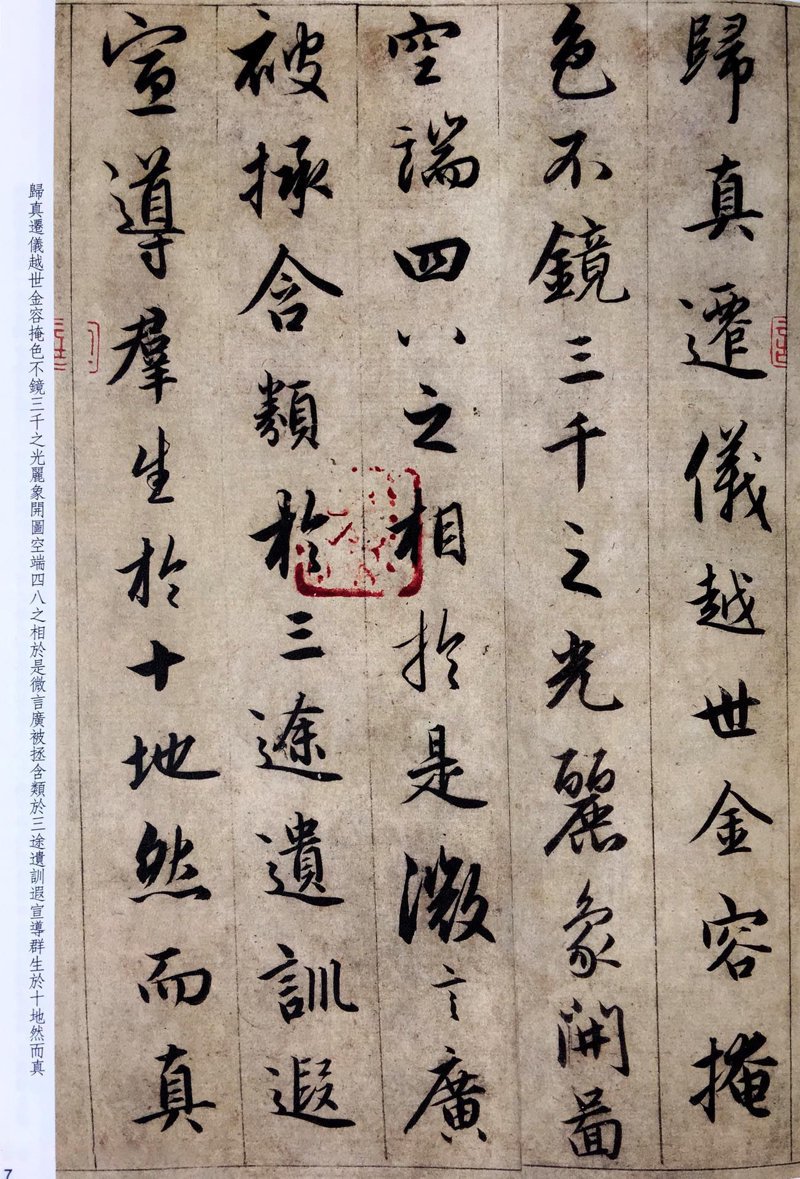 歸真遷儀越世金容掩
色不鏡三千之光麗象開圖
空端四八之相於是微言廣
被拯含類於三途遺訓遐
宣導群生於十地然而真
歸真遷儀越世金容掩色不鏡三千之光麗象開圖空端四八之相於是微言廣被拯含類於三途遺訓遐宣導群生於十地然而真
7